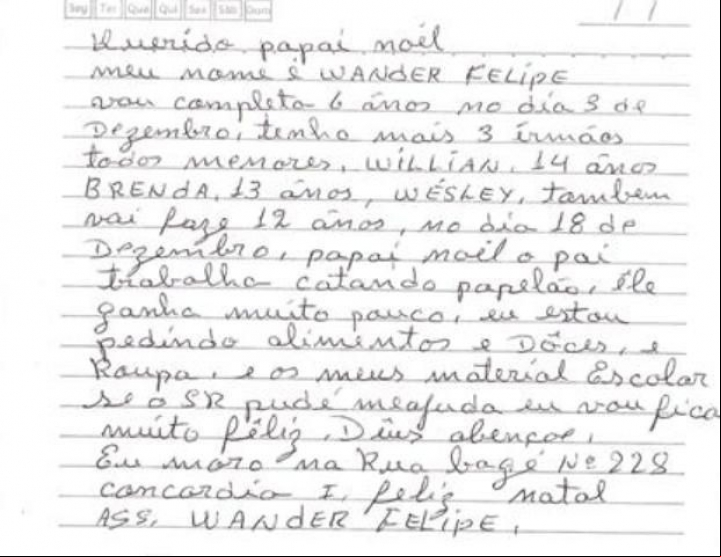 Seg Ter Qua Qui Sex Sáb Dom
Querido papai noél
meu nome é WANdER FELipE
vou completa 6 ános no dia 3 de
Dezembro, tenho mais 3 irmãos
todos menores, WiLLiAN, 14 ános
BRENdA, 13 ános, WÉSLEY, tambem
vai faze 12 ános, no dia 18 de
Dezembro, papai noél o pai
trabalha catando papelão, éle
ganha muito pouco, eu estou
pedindo alimentos e Dôces, e
Roupa, e os meus material Escolar
se o SR pudé meajuda eu vou fica
muito féliz, Dêus abençoe,
Eu moro na Rua bagé Nº 228
concordia I, feliz natal
ASS, WANdER FELipE,